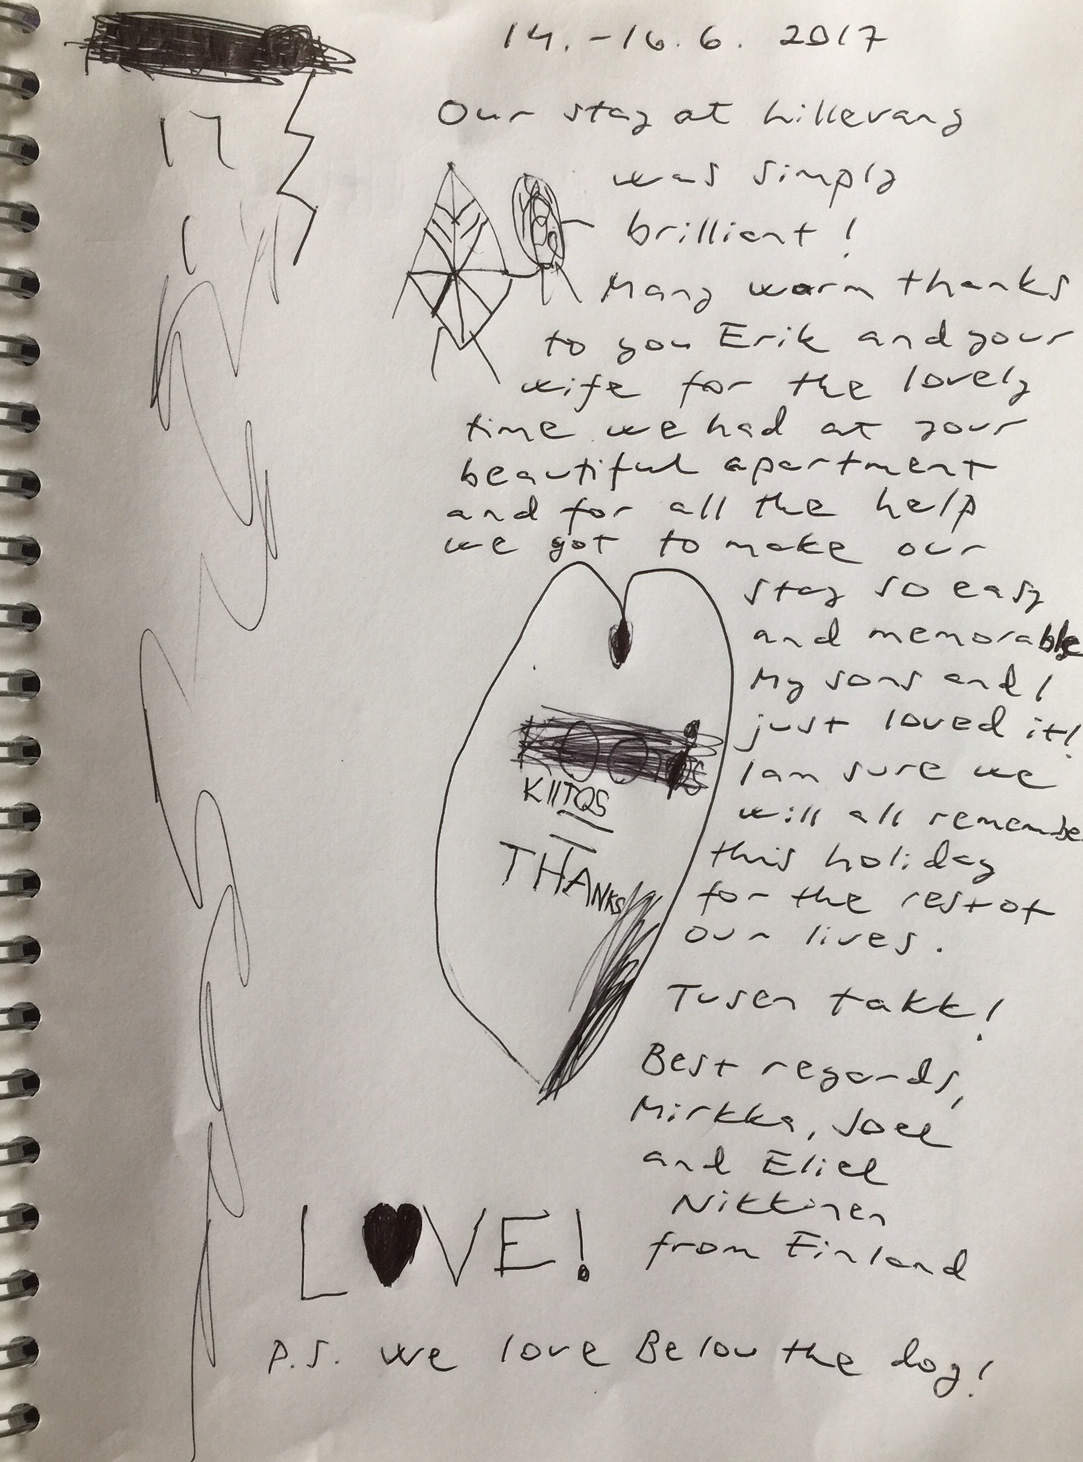 14.-16.6. 2017
Our stay at Lillevang
was simply
brilliant!
Many warm thanks
to you Erik and your
wife for the lovely
time we had at your
beautiful apartment
and for all the help
we got to make our
stay so easy
and memorable
My sons and I
just loved it!
I am sure we
will all remember
this holiday
for the rest of
our lives.
KIITOS
THANKS
Tusen takk!
Best regards,
Mirkka, Joel
and Eliel
Nikkinen
from Finland
LOVE!
P.S. We love Below the dog!